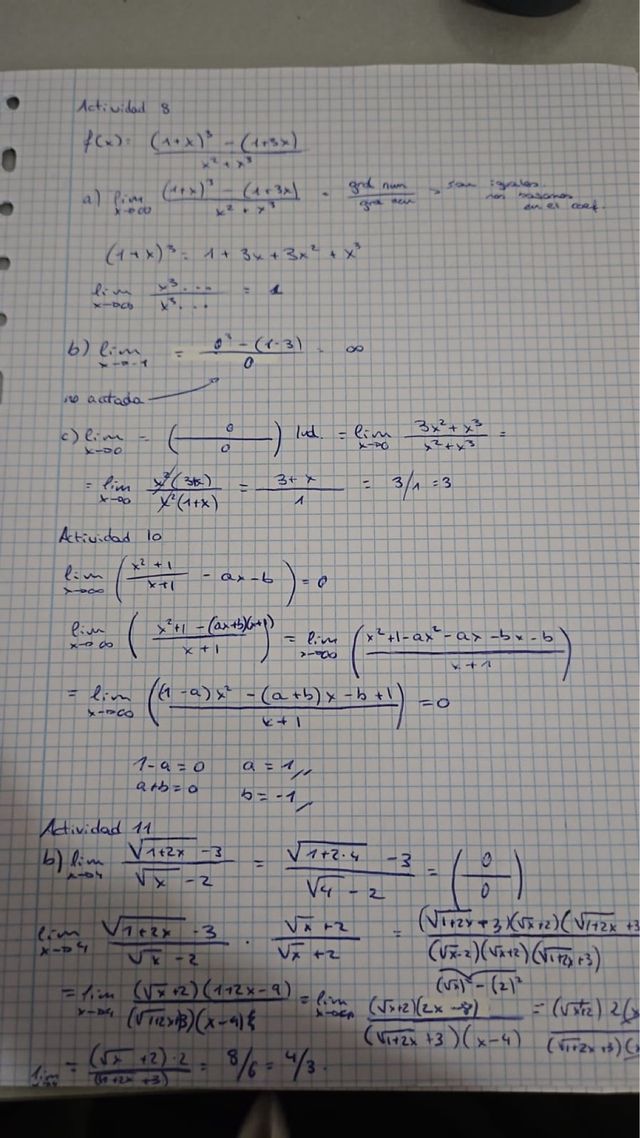 Actividad 8
f(x): ((1+x)³ - (1+3x))/(x² + x³)
a) lim x→∞ ((1+x)³ - (1+3x))/(x² + x³) = grd num/grd den → son iguales
nos basamos
en el coef.
(1+x)³ = 1 + 3x + 3x² + x³
lim x→∞ (x³...)/(x³...) = 1
b) lim x→-1 = (0³ - (1-3))/0 = ∞
no acotada
c) lim x→0 = (0/0) Ind. = lim x→0 (3x² + x³)/(x² + x³) =
= lim x→∞ (x²(3+x))/(x²(1+x)) = (3+x)/1 = 3/1 = 3
Actividad 10
lim x→∞ ((x² + 1)/(x+1) - ax - b) = 0
lim x→∞ ((x²+1 - (ax+b)(x+1))/(x+1)) = lim x→∞ ((x²+1-ax²-ax-bx-b)/(x+1))
= lim x→∞ (((1-a)x² - (a+b)x - b + 1)/(x+1)) = 0
1-a=0 a=1
a+b=0 b=-1
Actividad 11
b) lim x→4 (√(1+2x) - 3)/(√x - 2) = (√(1+2·4) - 3)/(√4 - 2) = (0/0)
lim x→4 (√(1+2x) - 3)/(√x - 2) · (√x + 2)/(√x + 2) = (√(1+2x) + 3)(√x+2)(√(1+2x) + 3/(√x-2)(√x+2)(√(1+2x)+3)
(√x)² - (2)²
= lim x→4 ((√x+2)(1+2x-9))/((√(1+2x)+3)(x-4)) = lim x→4 ((√x+2)(2x-8))/((√(1+2x)+3)(x-4)) = (√x+2) 2(x/(√(1+2x)+3)(
lim = ((√x+2)·2)/(√(1+2x)+3) = 8/6 = 4/3.